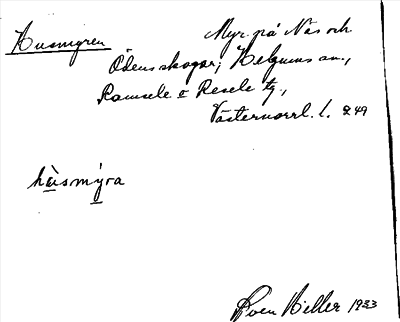 Husmyren
Myr. på Näs och
Ödens skogar; Helgums sn.,
Ramsele o Resele tg,
Västernorrl. l. 249
hùsmýra
Sven Hiller 1933